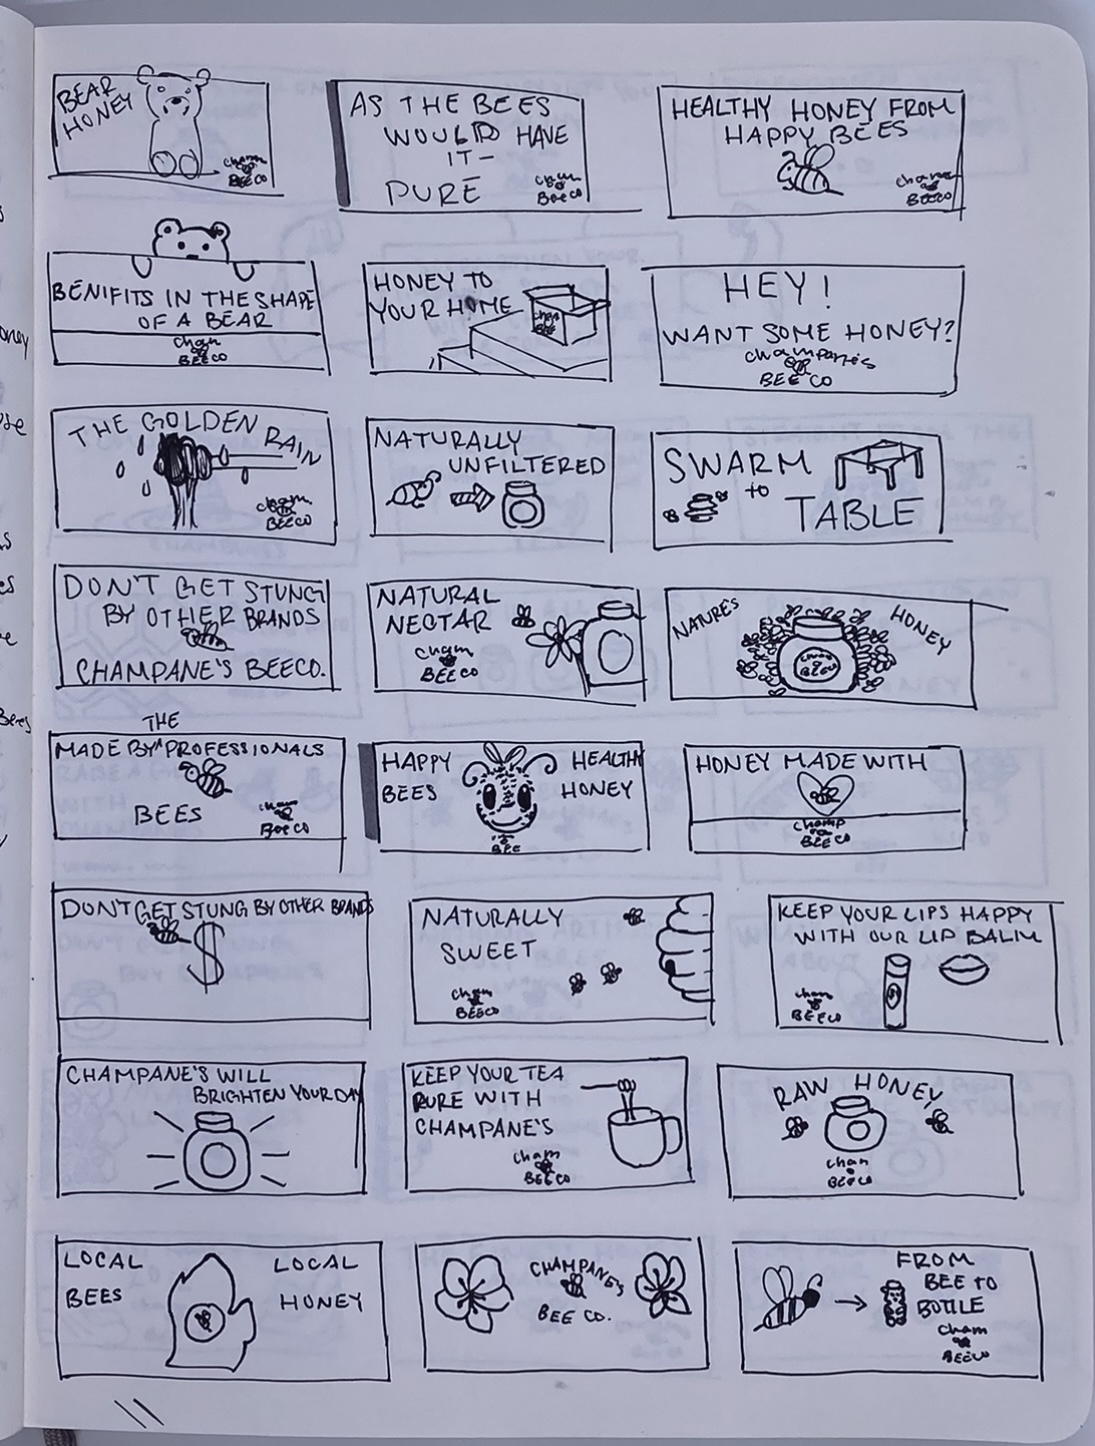 BEAR
HONEY
cham
BEECO
AS THE BEES
WOULD HAVE
IT-
PURE
cham
BeeCo
HEALTHY HONEY FROM
HAPPY BEES
cham
BeeCo
BENIFITS IN THE SHAPE
OF A BEAR
cham
BEECO
HONEY TO
YOUR HOME
cham
BEE
HEY!
WANT SOME HONEY?
BEE CO
THE GOLDEN
RAIN
cham
BEECO
NATURALLY
UNFILTERED
SWARM
to
TABLE
DON'T GET STUNG
BY OTHER BRANDS
CHAMPANE'S BEECO.
NATURAL
NECTAR
cham
BEECO
NATURES
HONEY
THE
MADE BY^PROFESSIONALS
BEES
cham
BeeCo
HAPPY
BEES
HEALTHY
HONEY
BEE
HONEY MADE WITH
champ
BEECO
DON'T GET STUNG BY OTHER BRANDS
$
NATURALLY
SWEET
cham
BEECO
KEEP YOUR LIPS HAPPY
WITH OUR LIP BALM
cham
BEECO
CHAMPANE'S WILL
BRIGHTEN YOUR DAY
KEEP YOUR TEA
PURE WITH
CHAMPANE'S
cham
BEECO
RAW HONEY
cham
BEECO
LOCAL
BEES
LOCAL
HONEY
CHAMPANE'S
BEE CO.
FROM
BEE TO
BOTTLE
cham
BEECO